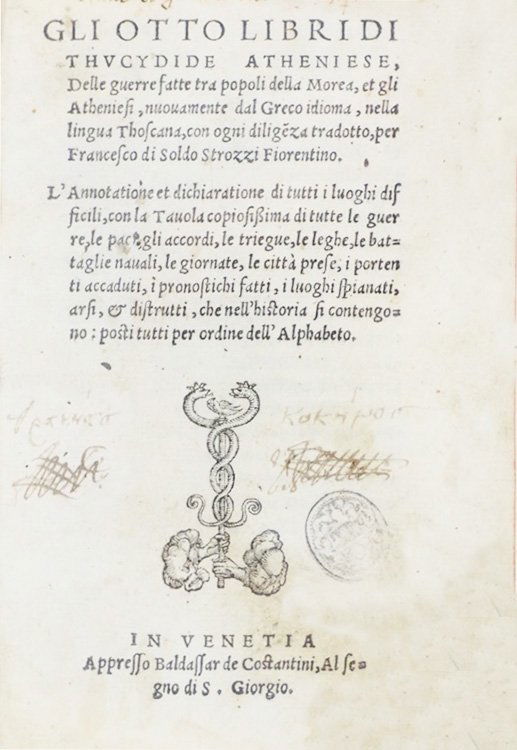 GLI OTTO LIBRI DI
THVCYDIDE ATHENIESE,
Delle guerre fatte tra popoli della Morea, et gli
Atheniesi, nuouamente dal Greco idioma, nella
lingua Thoscana, con ogni diligēza tradotto, per
Francesco di Soldo Strozzi Fiorentino.
L'Annotatione et dichiaratione di tutti i luoghi dif
ficili, con la Tauola copiosissima di tutte le guer
re, le paci, gli accordi, le triegue, le leghe, le bat-
taglie nauali, le giornate, le città prese, i porten
ti accaduti, i pronostichi fatti, i luoghi spianati,
arsi, & distrutti, che nell'historia si contengo-
no: posti tutti per ordine dell'Alphabeto.
IN VENETIA
Appresso Baldassar de Costantini, Al se-
gno di S. Giorgio.